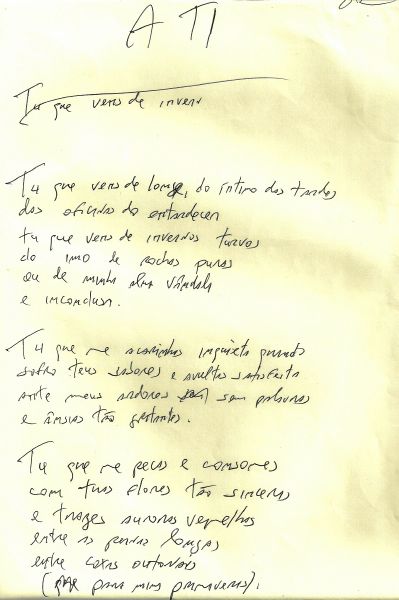 A TI
Tu que vens de inverno
Tu que vens de longe, do íntimo das tardes
das oficinas do entardecer
tu que vens de invernos turvos
do imo de rochas puras
ou de minha alma vândala
e inconclusa.
Tu que me acarinhas inquieta quando
sofro teus sabores e avultas satisfeita
ante meus ardores sem palavras
e ânsias tão gritantes.
Tu que me pecas e consomes
com tuas flores tão sinceras
e trazes auroras vermelhas
entre as pernas longas
entre coxas outonais
( para mim primaveras).